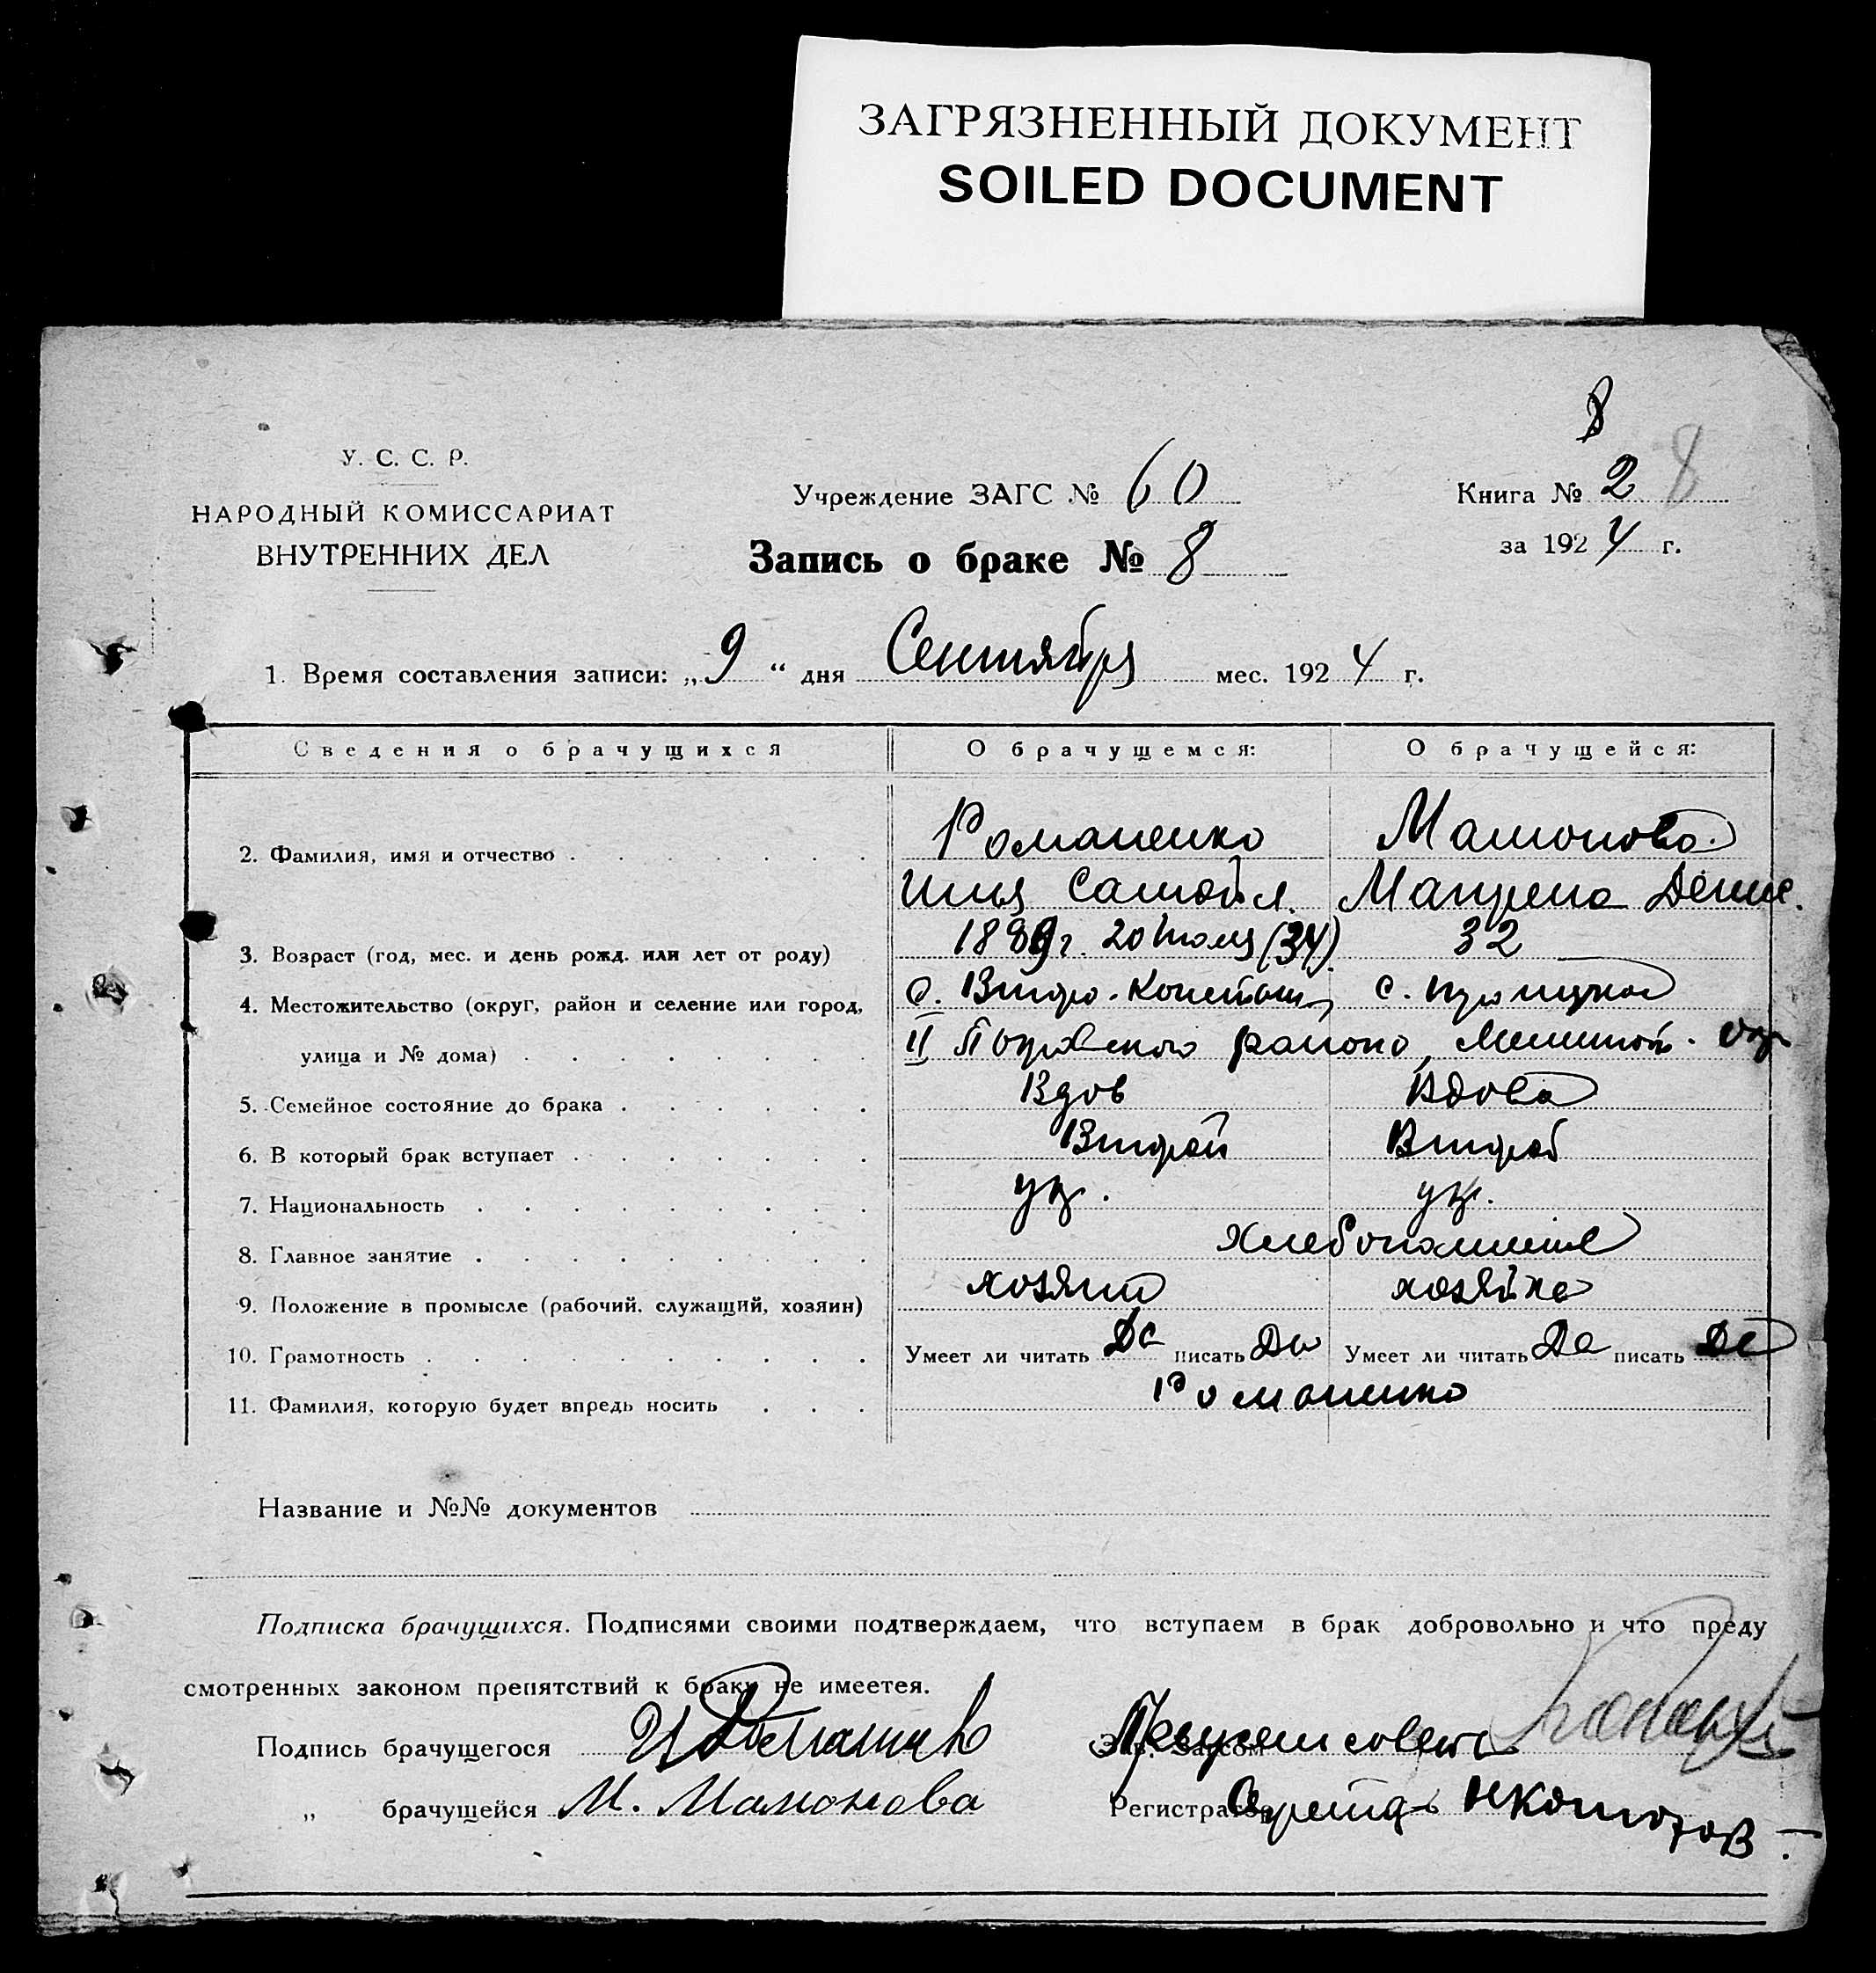 ЗАГРЯЗНЕННЫЙ ДОКУМЕНТ
SOILED DOCUMENT
8
У. С. С. Р.
НАРОДНЫЙ КОМИССАРИАТ
ВНУТРЕННИХ ДЕЛ
Учреждение ЗАГС № 60
Книга № 2 8
за 1924 г.
Запись о браке № 8
1. Время составления записи: „9“ дня Сентября мес. 1924 г.
Сведения о брачущихся О брачущемся: О брачущейся:
2. Фамилия, имя и отчество Романенко Мамонова
Илья Самойл. Матрена
3. Возраст (год, мес. и день рожд. или лет от роду) 1889 г. 20 Июля (34) 32
4. Местожительство (округ, район и селение или город, с. Втуро. Констан с.
улица и № дома) II Покровского района,
5. Семейное состояние до брака Вдов Вдова
6. В который брак вступает Второй Второй
7. Национальность ук. ук.
8. Главное занятие Хлебопашество
9. Положение в промысле (рабочий, служащий, хозяин) хозяин хозяйка
10. Грамотность Умеет ли читать Да писать Да Умеет ли читать Да писать Да
11. Фамилия, которую будет впредь носить Романенко
Название и №№ документов
Подписка брачущихся. Подписями своими подтверждаем, что вступаем в брак добровольно и что преду
смотренных законом препятствий к браку не имеетея.
Подпись брачущегося Зав. Загсом
„ брачущейся М. Мамонова Регистратор